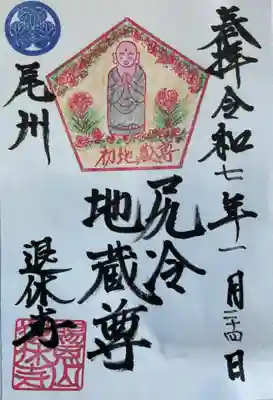 奉拝令和七年一月二十四日
初地蔵尊
尻冷
地蔵尊
尾州
退休寺